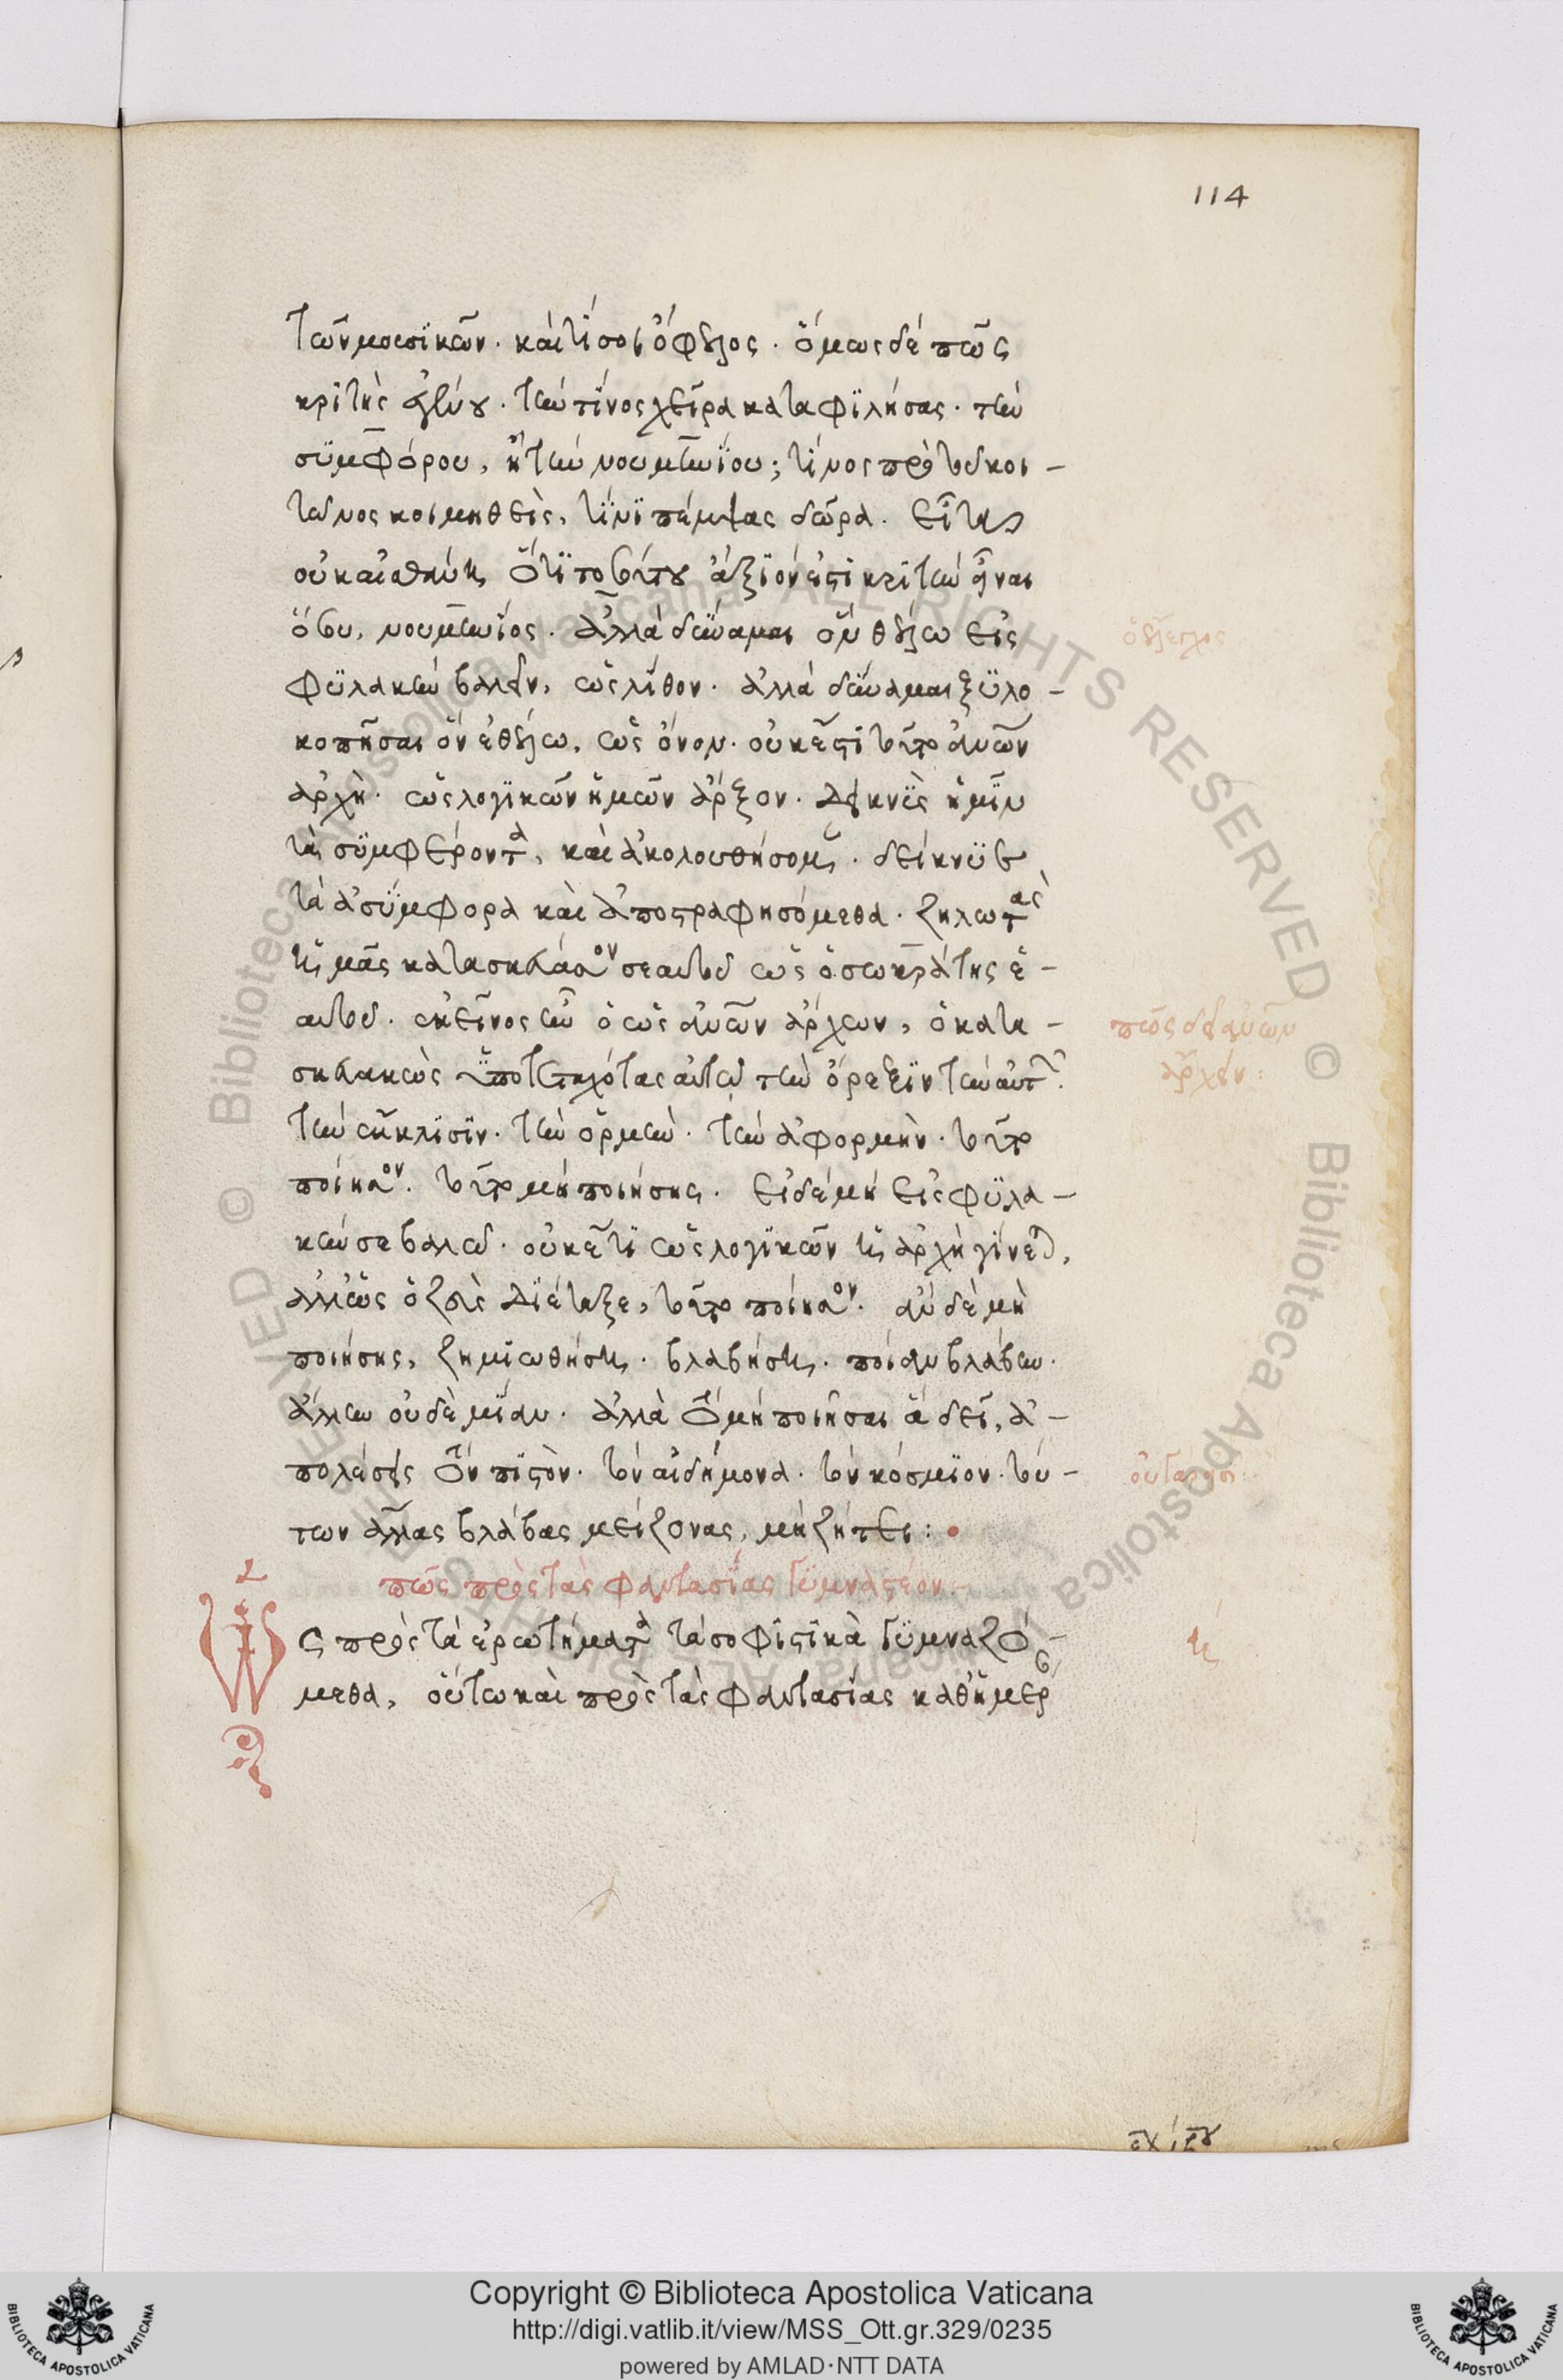 114
τῶν μουσικῶν. καὶ τί σοι ὄφελος. ὅμως δὲ πῶς
κριτὴς ἐγένου. τὴν τίνος χεῖρα καταφιλήσας. τὴν
συμφόρου, ἢ τὴν νουμηνίου; τίνος πρὸ τοῦ κοι-
τῶνος κοιμηθεὶς, τίνι πέμψας δῶρα. εἶτα
οὐκ αἰσθάνῃ ὅτι τοσούτου ἄξιόν ἐστι κριτὴν εἶναι
ὅσου, νουμηνίος. ἀλλὰ δύναμαι ὃν θέλω εἰς
φυλακὴν βαλεῖν, ὡς λίθον. ἀλλὰ δύναμαι ξυλο-
κοπῆσαι ὃν ἐθέλω, ὡς ὄνον. οὐκ ἔστι τοῦτο ἀν͞ων
ἀρχή. ὡς λογικῶν ἡμῶν ἄρξον. δεικνὺς ἡμῖν
τὰ συμφέροντα, καὶ ἀκολουθήσομεν. δείκνυε
τὰ ἀσύμφορα καὶ ἀποστραφησόμεθα. ζηλωτὰς
ἡμᾶς κατασκεύασον σεαυτοῦ ὡς ὁ σωκράτης ἑ-
αυτοῦ. ἐκεῖνος ἦν ὁ ὡς ἀν͞ων ἄρχων, ὁ κατε-
σκευακὼς ὑποτεταχότας αὐτῷ τὴν ὄρεξιν τὴν αὐτῶν.
τὴν ἔκκλισιν. τὴν ὁρμὴν. τὴν ἀφορμὴν. τοῦτο
ποίησον. τοῦτο μὴ ποιήσῃς. εἰ δὲ μή εἰς φυλα-
κήν σε βαλῶ. οὐκέτι ὡς λογικῶν ἡ ἀρχὴ γίνεται,
ἀλλ' ὡς ὁ ζεὺς διέταξε, τοῦτο ποίησον. ἂν δὲ μὴ
ποιήσῃς, ζημιωθήσῃ. βλαβήσῃ. ποίαν βλάβην.
ἄλλην οὐδὲ μίαν. ἀλλὰ τὸ μὴ ποιῆσαι ἃ δεῖ, ἀ-
πολέσεις τὸν πιστὸν. τὸν αἰδήμονα. τὸν κόσμιον. τού-
των ἄλλας βλάβας μείζονας, μὴ ζήτει:
πῶς πρὸς τὰς φαντασίας γυμναστέον.
Ὡς πρὸς τὰ ἐρωτήματα τὰ σοφιστικὰ γυμναζό-
μεθα, οὕτω καὶ πρὸς τὰς φαντασίας καθ' ἡμέρ
ὁ ἔλεγχος
πῶς δεῖ ἀν͞ων
ἄρχειν:
η
Copyright © Biblioteca Apostolica Vaticana
http://digi.vatlib.it/view/MSS_Ott.gr.329/0235
powered by AMLAD·NTT DATA
BIBLIOTECA APOSTOLICA VATICANA
BIBLIOTECA APOSTOLICA VATICANA